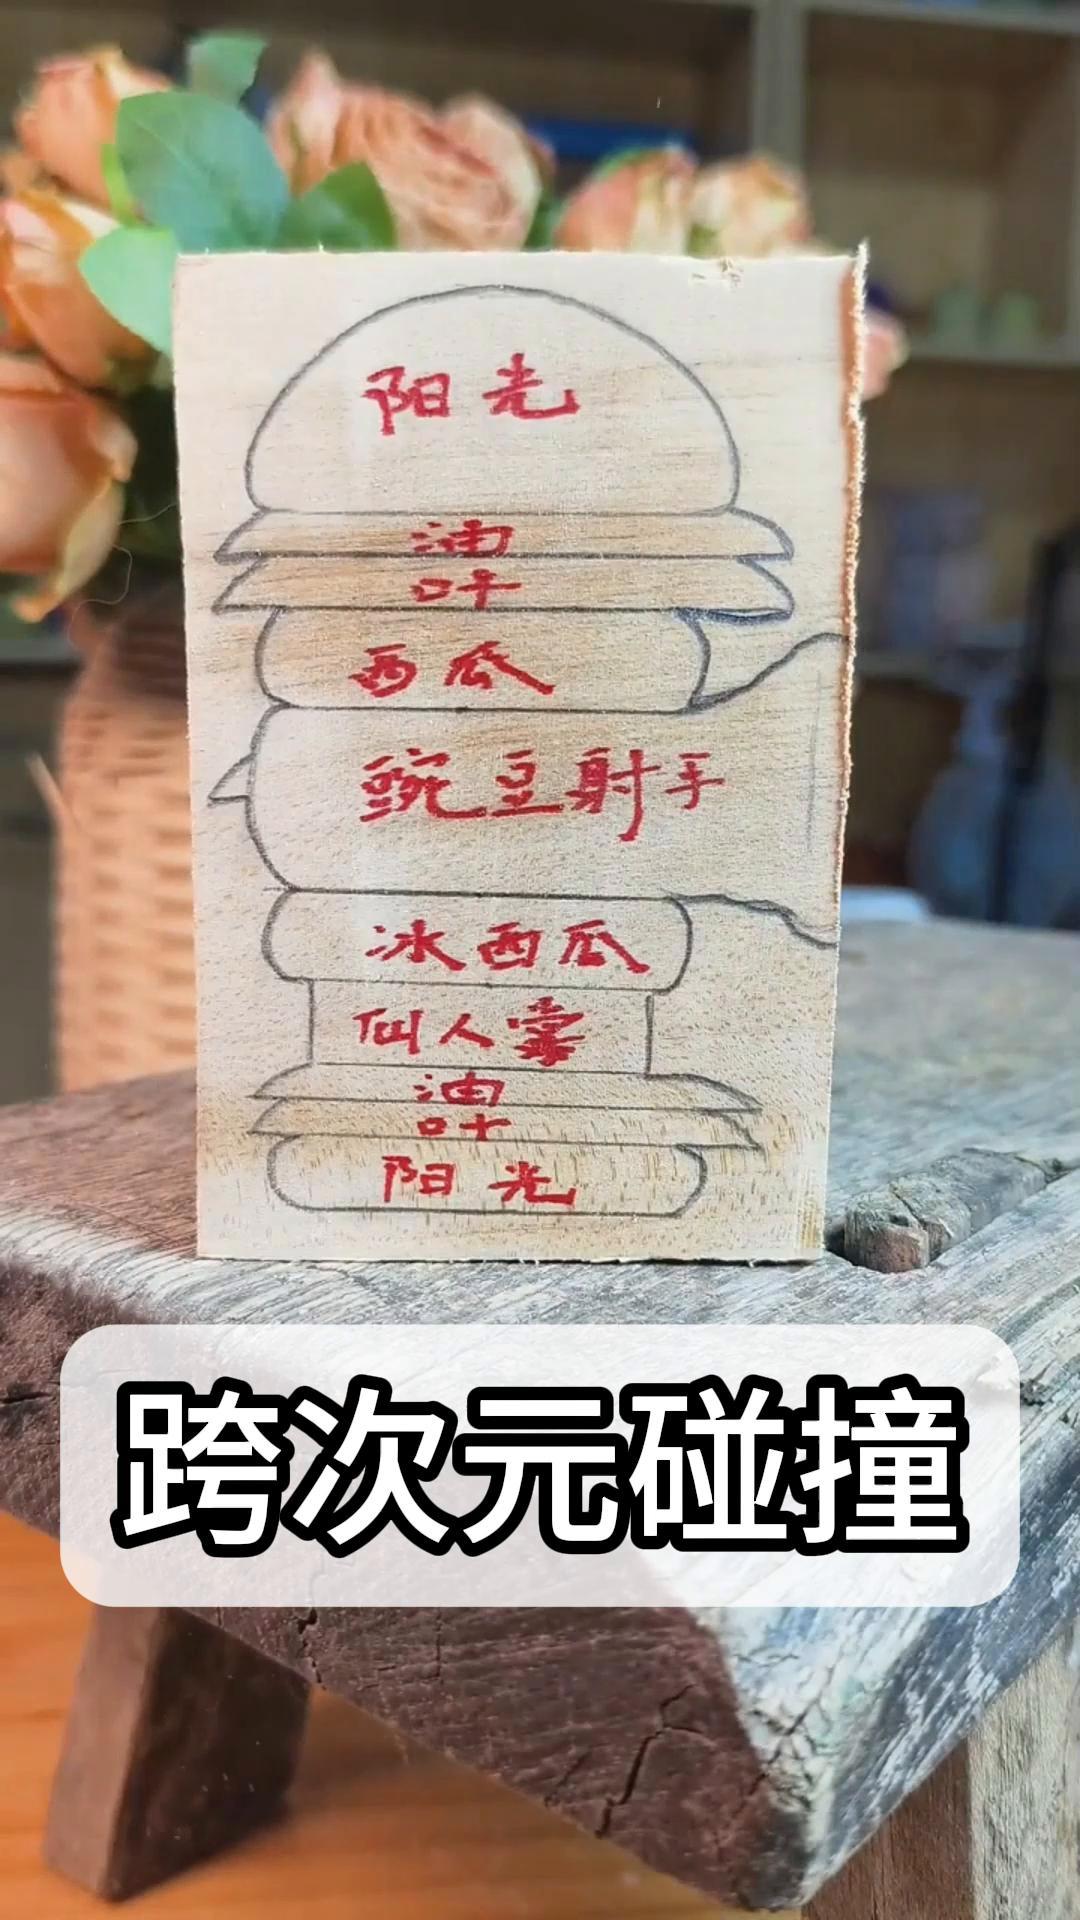 阳光
油
叶
西瓜
豌豆射手
冰西瓜
仙人掌
油
叶
阳光
跨次元碰撞